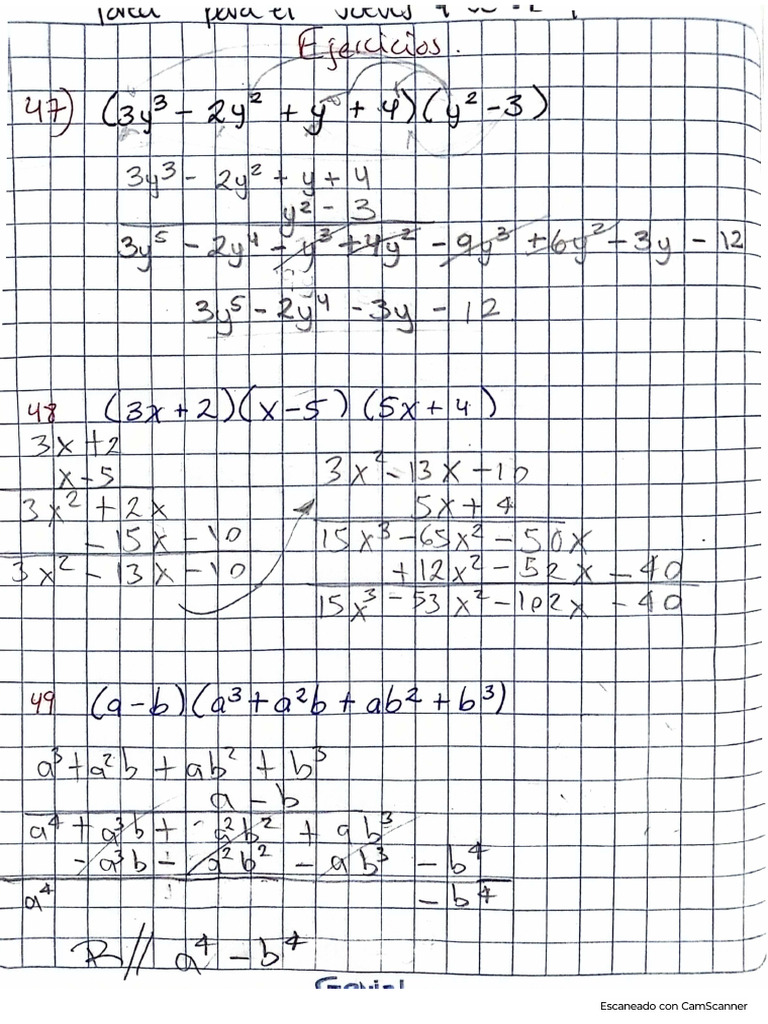 para el
Ejercicios.
47) (3y³ - 2y² + y + 4)(y² - 3)
3y³ - 2y² + y + 4
y² - 3
3y⁵ - 2y⁴ - y³ + 4y² - 9y³ + 6y² - 3y - 12
3y⁵ - 2y⁴ - 3y - 12
48 (3x + 2)(x - 5)(5x + 4)
3x + 2
x - 5
3x² + 2x
- 15x - 10
3x² - 13x - 10
3x² - 13x - 10
5x + 4
15x³ - 65x² - 50x
+ 12x² - 52x - 40
15x³ - 53x² - 102x - 40
49 (a - b)(a³ + a²b + ab² + b³)
a³ + a²b + ab² + b³
a - b
a⁴ + a³b + a²b² + ab³
- a³b - a²b² - ab³ - b⁴
a⁴ - b⁴
R// a⁴ - b⁴
Escaneado con CamScanner